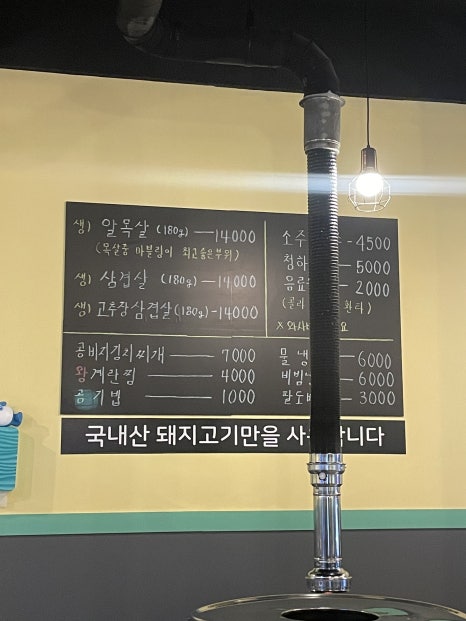 생) 알목살 (180g) — 14000
(목살중 마블링이 최고 좋은부위)
생) 삼겹살 (180g) — 14000
생) 고추장삼겹살 (180g) - 14000
소주 - 4500
청하 5000
음료 2000
(콜라
X 와사비 요
콩비지김치찌개 — 7000
왕계란찜 — 4000
공기밥 — 1000
물냉 6000
비빔 6000
팔도 3000
국내산 돼지고기만을 사 합니다